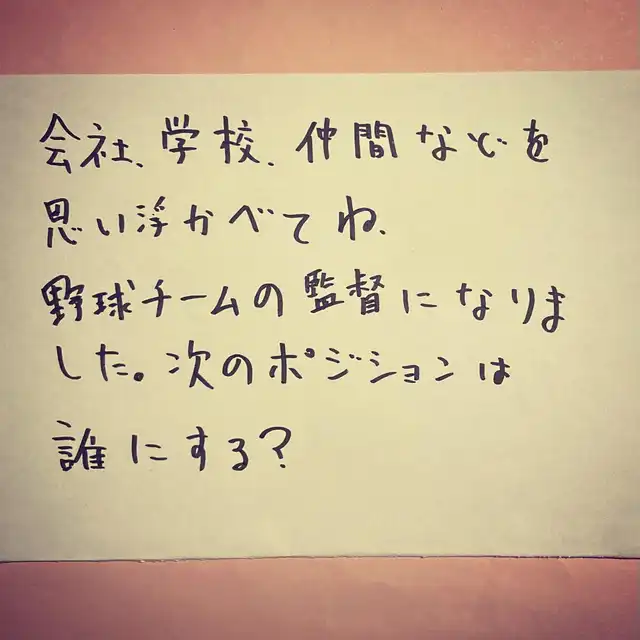 会社、学校、仲間などを
思い浮かべてね、
野球チームの監督になりま
した。次のポジションは
誰にする？